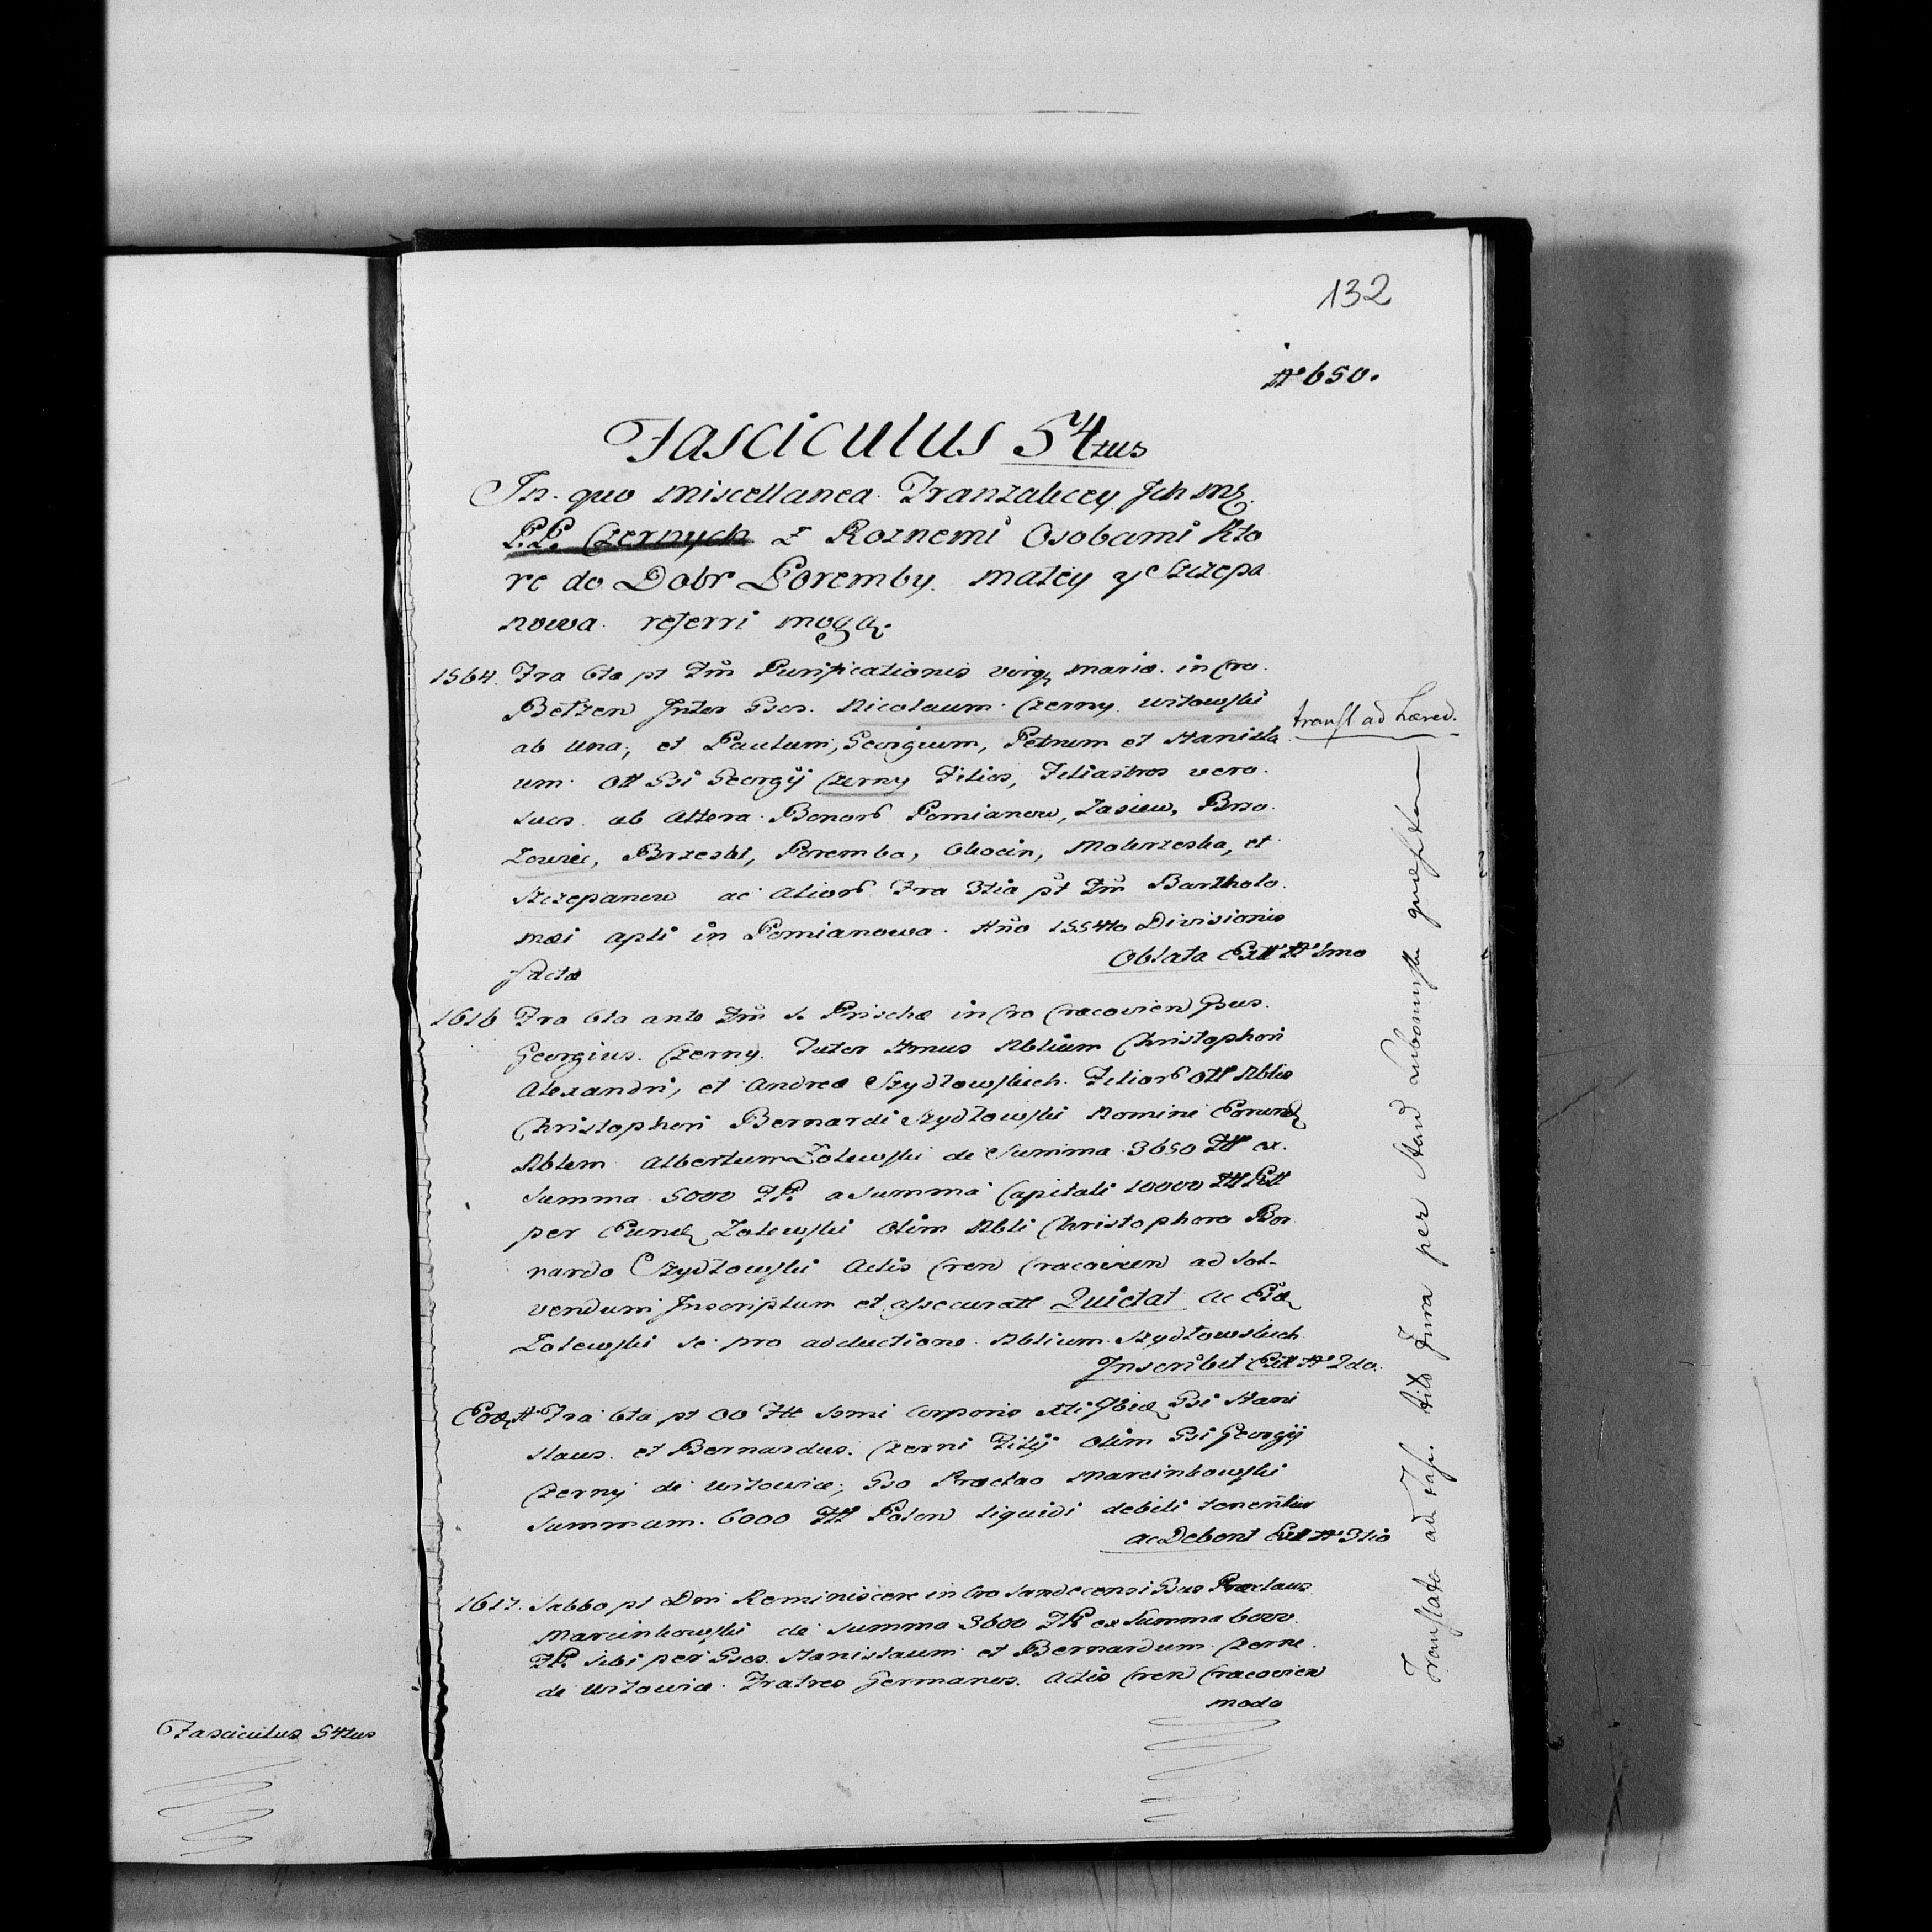 132
No 650.
Fasciculus 54tus
In quo Miscellanea Tranzakcey Ich Mć
P.P. Czernych z Roznemi Osobami Kto
re do Dobr Poremby Małey y Szczepa
nowa referri mogą.
1564. Fra 6ta pt Fm Purificationis Virg Mariæ in Cro
Betzen Inter Gsos. Nicolaum Czerny Witowski
ab una, et Paulum, Georgium, Petrum et Stanisla
um Olt Gsi Georgij Czerny Filios, Filiastros vero
suos ab Altera Bonorb Pomianow, Jasiew, Brzo
zowiec, Brzeski, Poremba, Okocin, Mokrzeska, et
Szczepanow ac Aliorb Fra 3tia pt Fm Bartholo
mæi Apli in Pomianowa Ano 1554to Divisionis
factæ Oblata Extt No 1mo
transl ad Hæred.
1616 Fra 6ta ante Fm S. Prischæ in Cro Cracovien Gsus.
Georgius Czerny Tutor Nmus Nblium Christophori
Alexandri, et Andreæ Szydłowskich Filiorb Olt Nblis
Christophori Bernardi Szydłowski Nomine Eorund
Nblem Albertum Zolewski de Summa 3650 Fltt ex
Summa 5000 FP. a Summa Capitali 10000 Fltt Pltt
per Eund Zolewski Olim Nbli Christophoro Ber
nardo Szydłowski Actis Cren Cracovien ad Sol-
vendum Inscriptum et assecuratt Quietat ac Eid
Zolewski se pro adductione Nblium Szydłowskich
Inscribit Extt No 2do.
Eod Ao Fra 6ta pt OO Ftt Ssmi Corporis Xti Ibid Gsi Stani
slaus et Bernardus Czerni Filij Olim Gsi Georgij
Czerny de Witowice, Gso Præclao Marcinkowski
Summam 6000 Fltt Polon liquidi debiti tenentur
ac Debent Extt No 3tio
1617. Sabbo pt Dm Reminiscere in Cro Sandecensi Gsus Præclaus
Marcinkowski de Summa 3600 FP. ex Summa 6000
FP. sibi per Gsos. Stanislaum et Bernardum Czerne
de Witowice Fratres Germanos Actis Cren Cracovien
modo
Translata ad Fasc. Jura per Lubomirski
Fasciculus 54tus